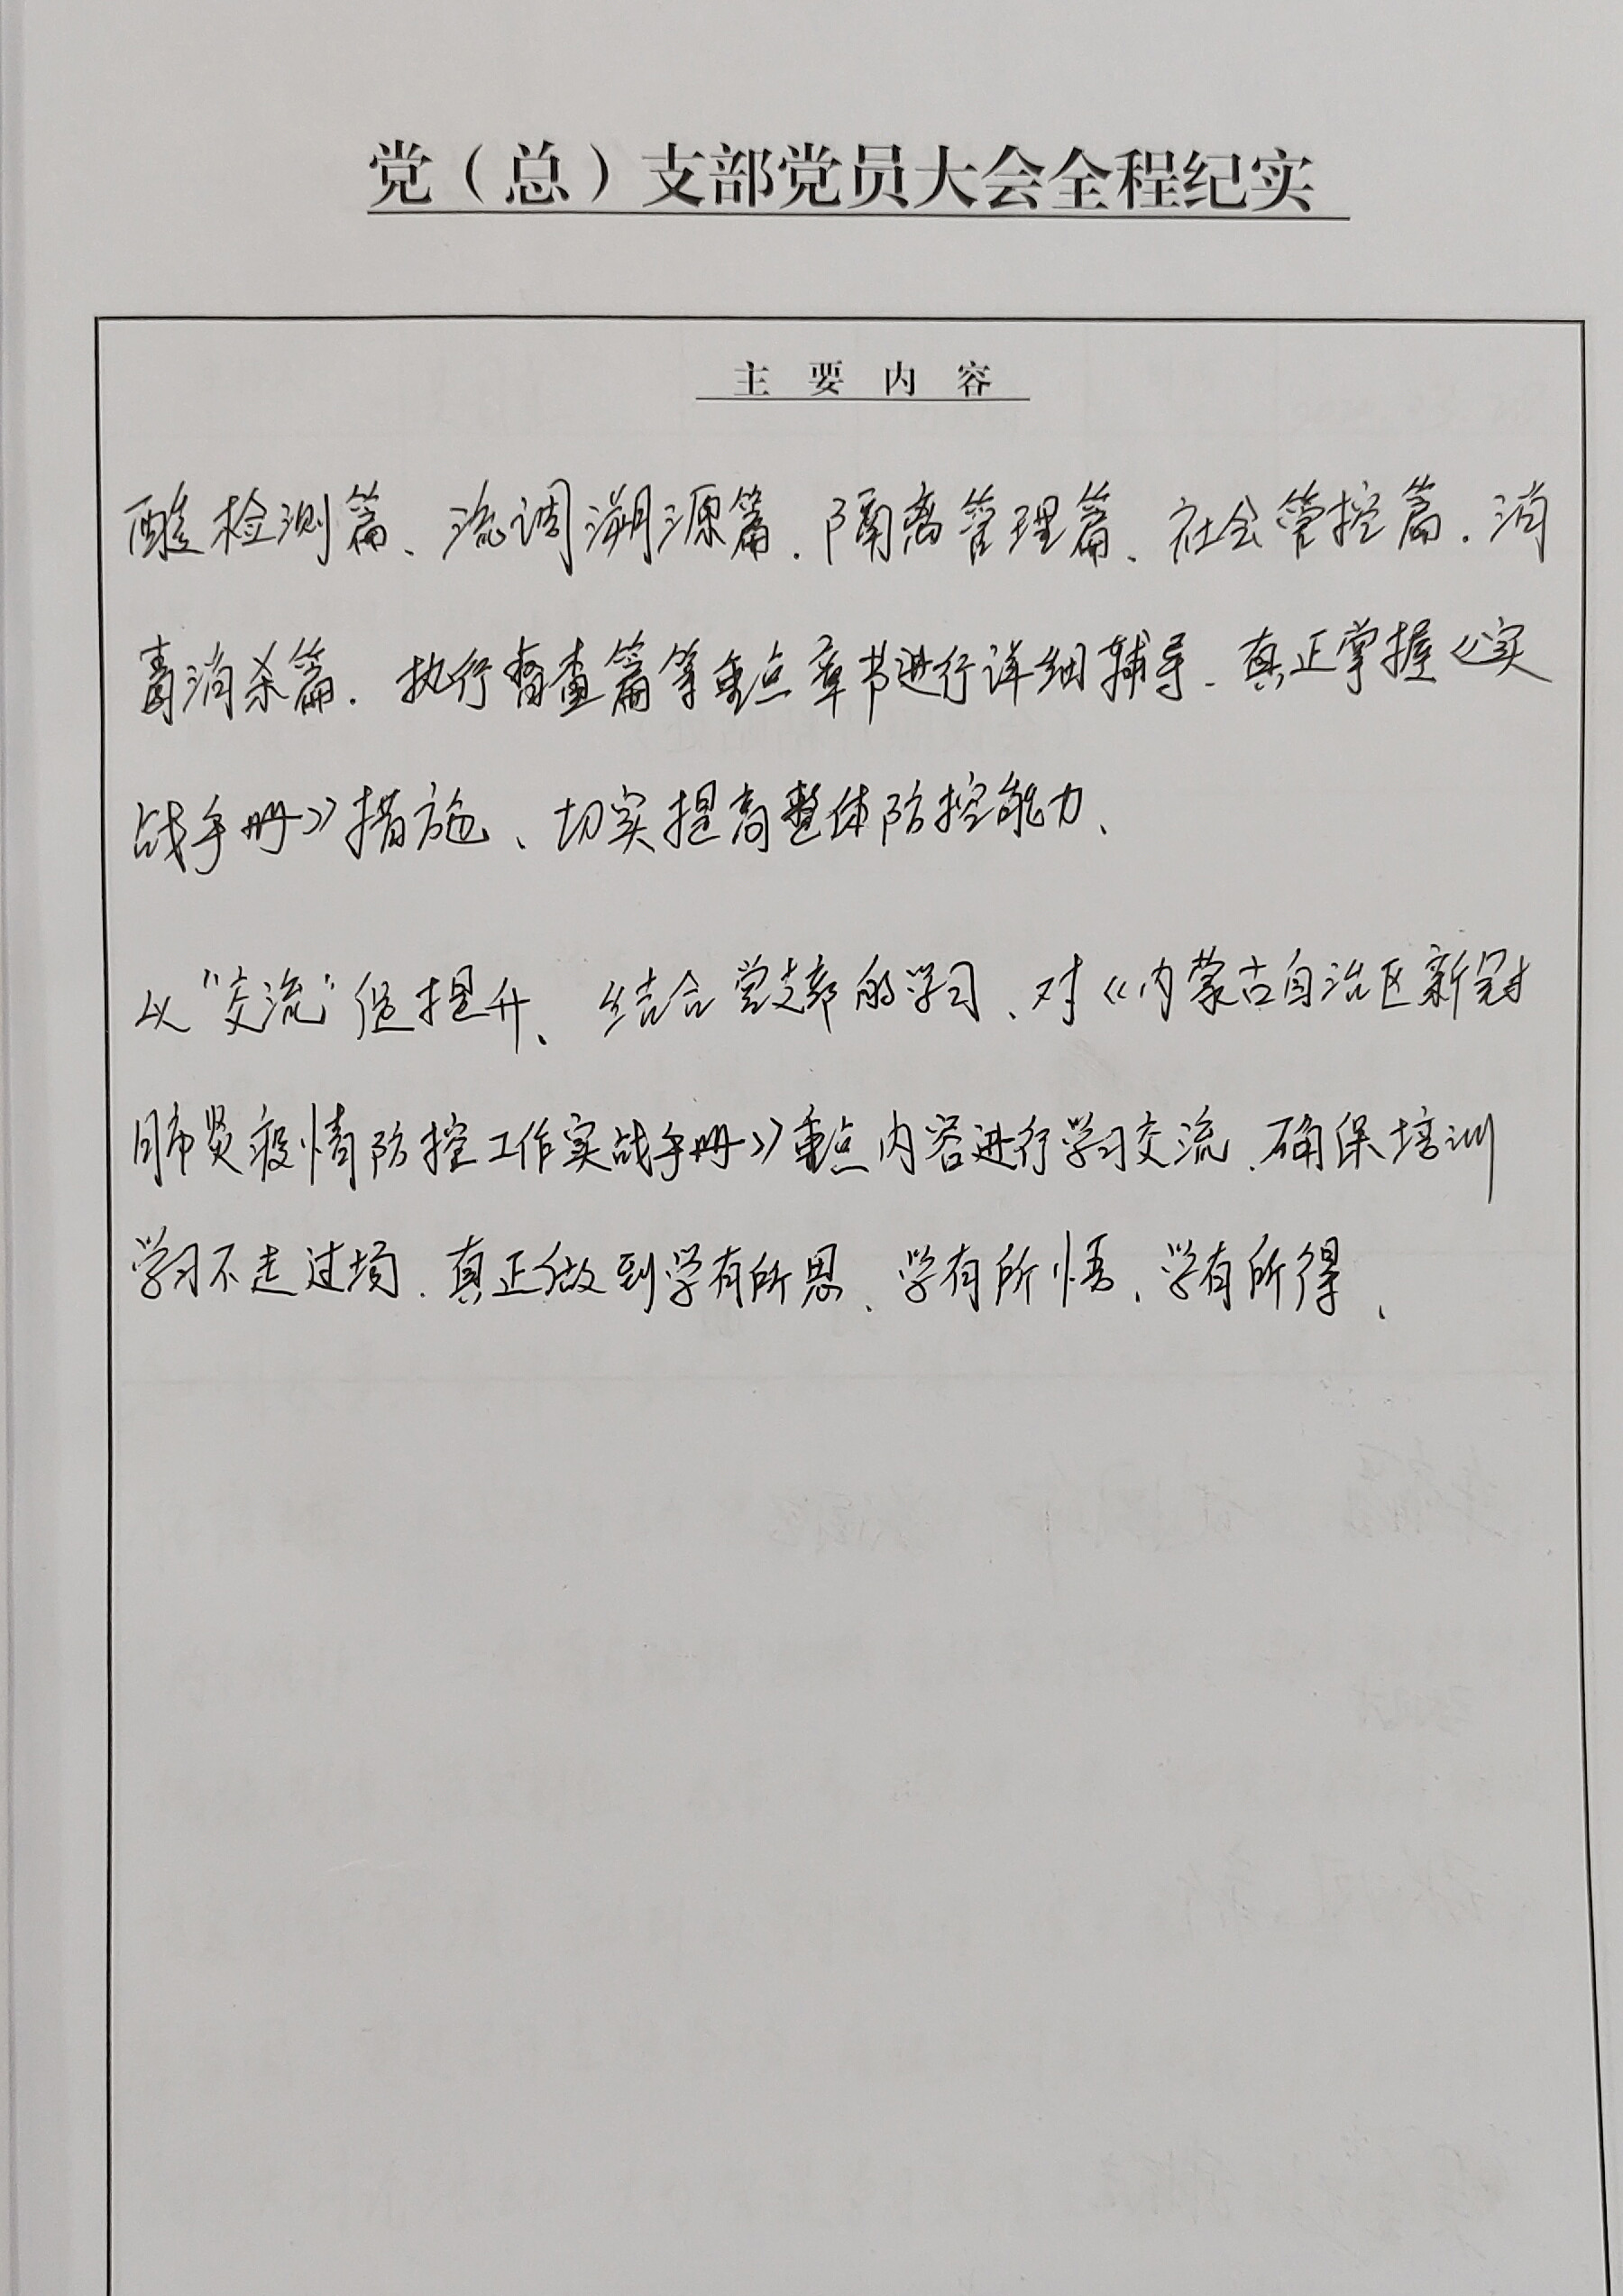 党（总）支部党员大会全程纪实
主要内容
酸检测篇、流调溯源篇、隔离管理篇、社会管控篇、消
毒消杀篇、执行督查篇等重点章节进行详细辅导、真正掌握《实
战手册》措施、切实提高整体防控能力、
以“交流”促提升、结合党支部的学习、对《内蒙古自治区新冠
肺炎疫情防控工作实战手册》重点内容进行学习交流、确保培训
学习不走过场、真正做到学有所思、学有所悟、学有所得、